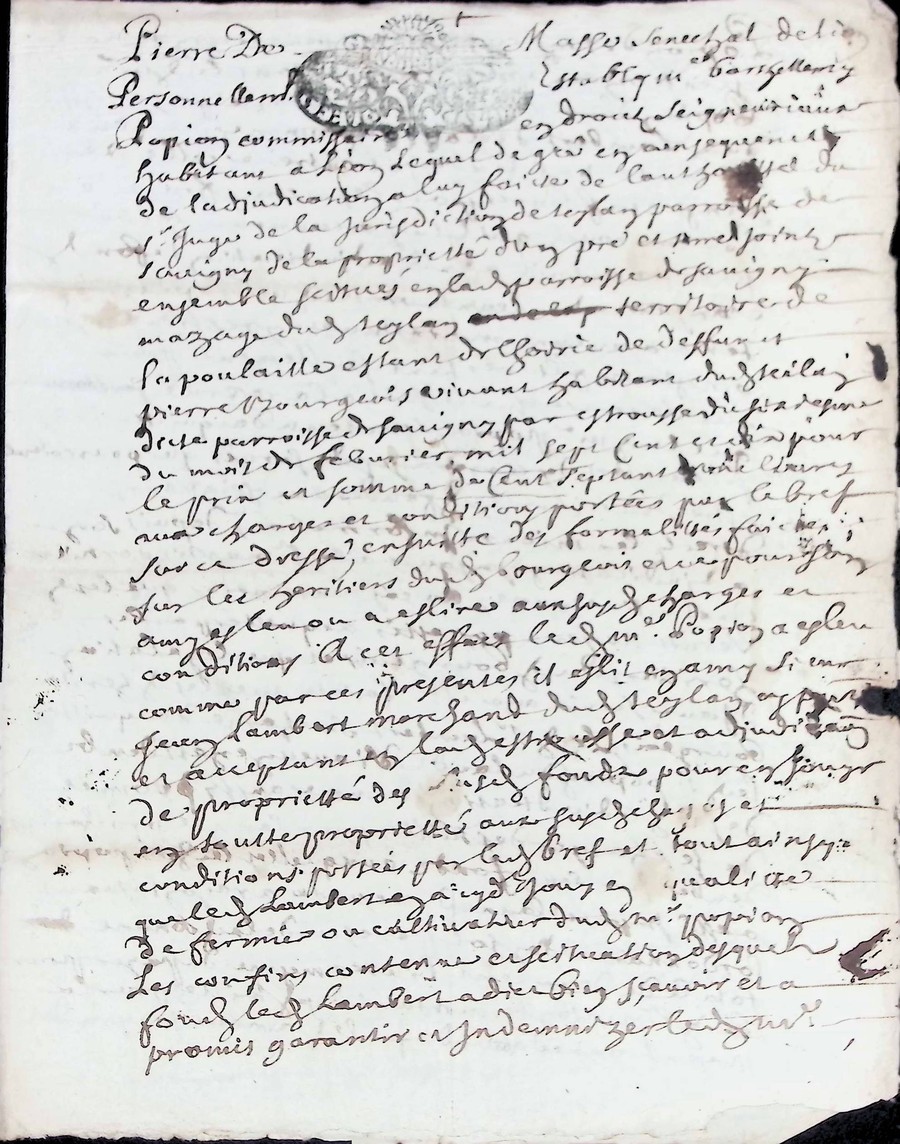 Pierre De Masso Senechal de Lion
Personnellemt. Estably me barthellemy
Popion commissaire en droits Seigneuriaux
habitant a Lion Lequel de gré en consequence
de ladjudication a luy faicte de lauthoritté du
sr. Juge de la Jurisdiction de teylan parroisse de
savigny de la proprietté dun pré et terre joints
ensemble scitués en lad parroisse de savigny
mazage dud teylan territoire de
la poulaitte estant de lhoirie de deffunct
pierre Bourgeois vivant habitant dud teilan
dicte parroisse de savigny par estrousse du
du mois de feburier mil sept Cent et dix pour
le prix et somme de Cent Septante livres
aux charges et conditions portées par le bref
sur ce dressé ensuitte des formalittés faictes
sur les heritiers dud bourgeois et ce pour son
amy esleu ou a eslire aux susd charges et
conditions A cet effect led me. Popion a esleu
comme par ces presentes il eslit en amy Sieur
Jean Lambert marchand dud teylan
et acceptant lad estrousse et adjudication
de proprietté des susd fondz pour en jouyr
en toutte proprietté aux susd charges et
conditions portées par led bref et tout ainsy
que led Lambert en a cy dt jouy en qualitté
de fermier ou cultivateur dud me. popion
Les confins contenue et scituation desquels
fondz led Lambert a dict bien sçavoir et a
promis garantir et Indemnizer led me.